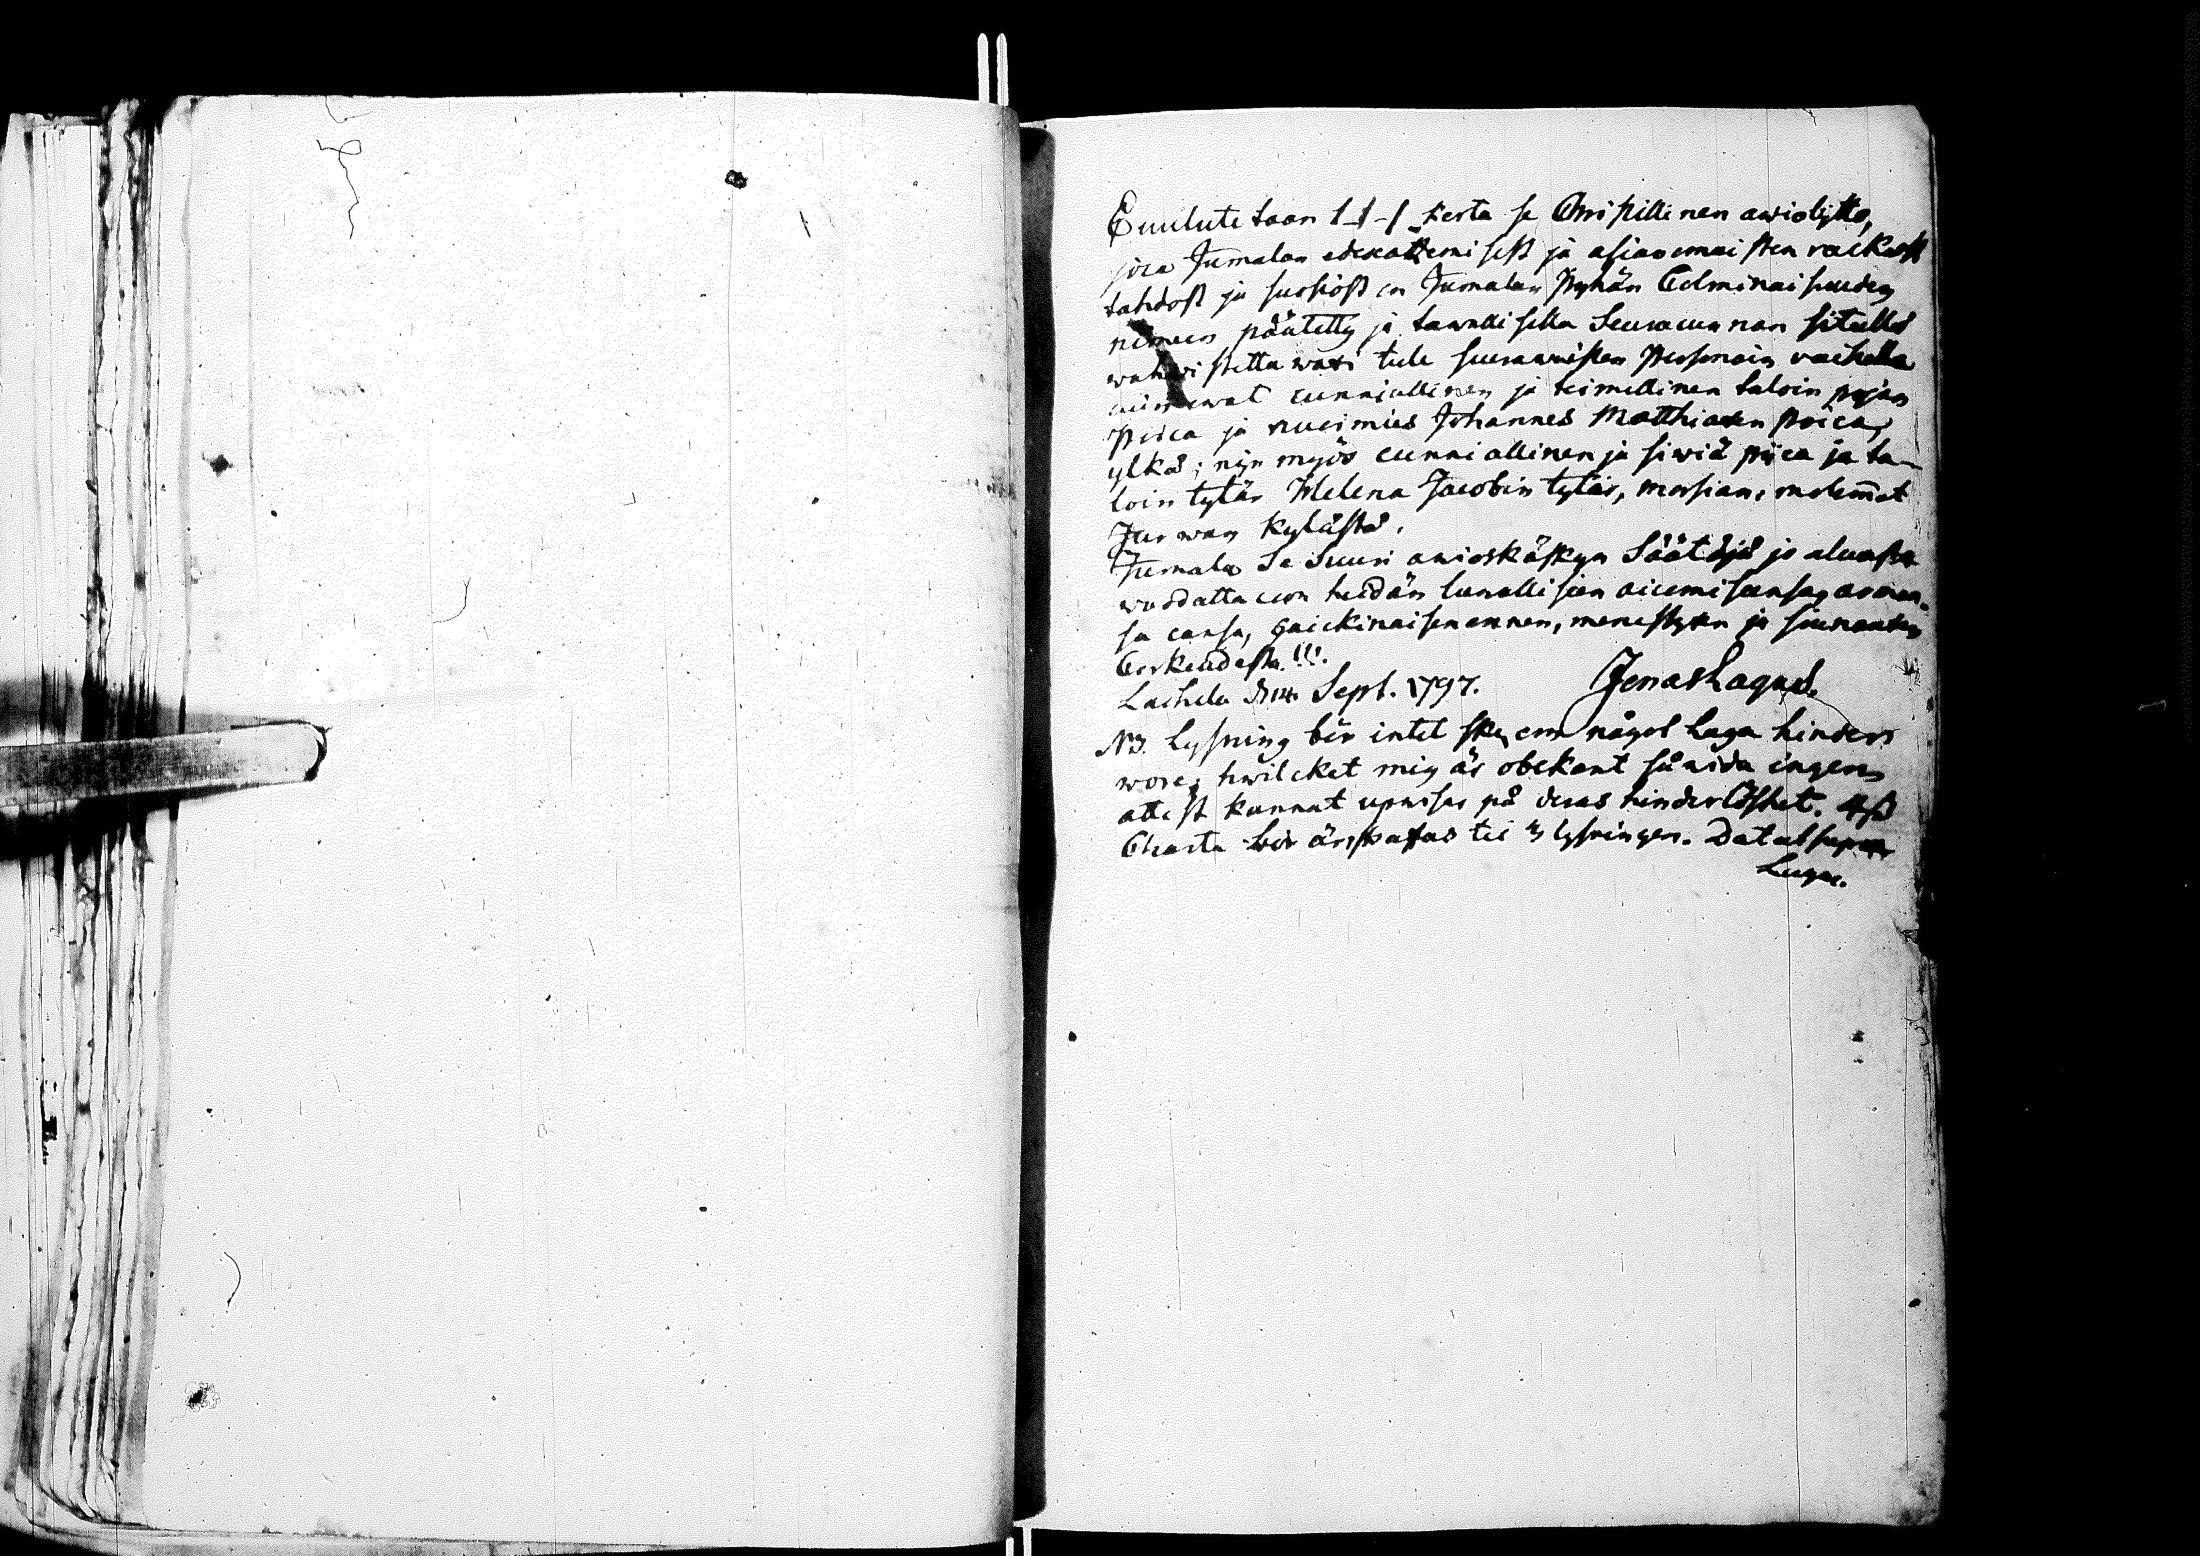 Cuulutetaan 1-1-1 kerta se Christillinen awioliitto,
joca Jumalan edescattzemisest ja asianomaisten rackast
tahdost ja suosiost on Jumalan Pyhän Colminaisuuden
nimeen päätetty ja tawallisella Seuracunnan sitellä
wahwistettawaxi tule seurawaisten Personain waihella
cunniallinen ja toimellinen taloin pojan
Poica ja nuorimies Johannes Matthiaxen Poica,
ylkä; nijn myös cunniallinen ja siwiä pijca ja ta-
loin tytär Helena Jacobin tytär, morsian, molemmat
Jurwan kylästä.
Jumala Se Suuri awioskäskyn Säätäjä ja alcusta
wuodattacon heidän luwallisen aicomisensa, armon-
sa cansa, caickinaisen onnen, menestyxen ja siunauxen
Corkeudesta!!!
Laihela d. 14. Sept. 1797. Jonas Lagus.
NB. Lysning bör intet ske, om någol laga hinder
wore, hwilcket mig är obekant såwida ingen
attest kunnat upwisas på deras hinderlöshet. 4 sk
Charta bör til lysningen. Dat ut supra
Lagus.